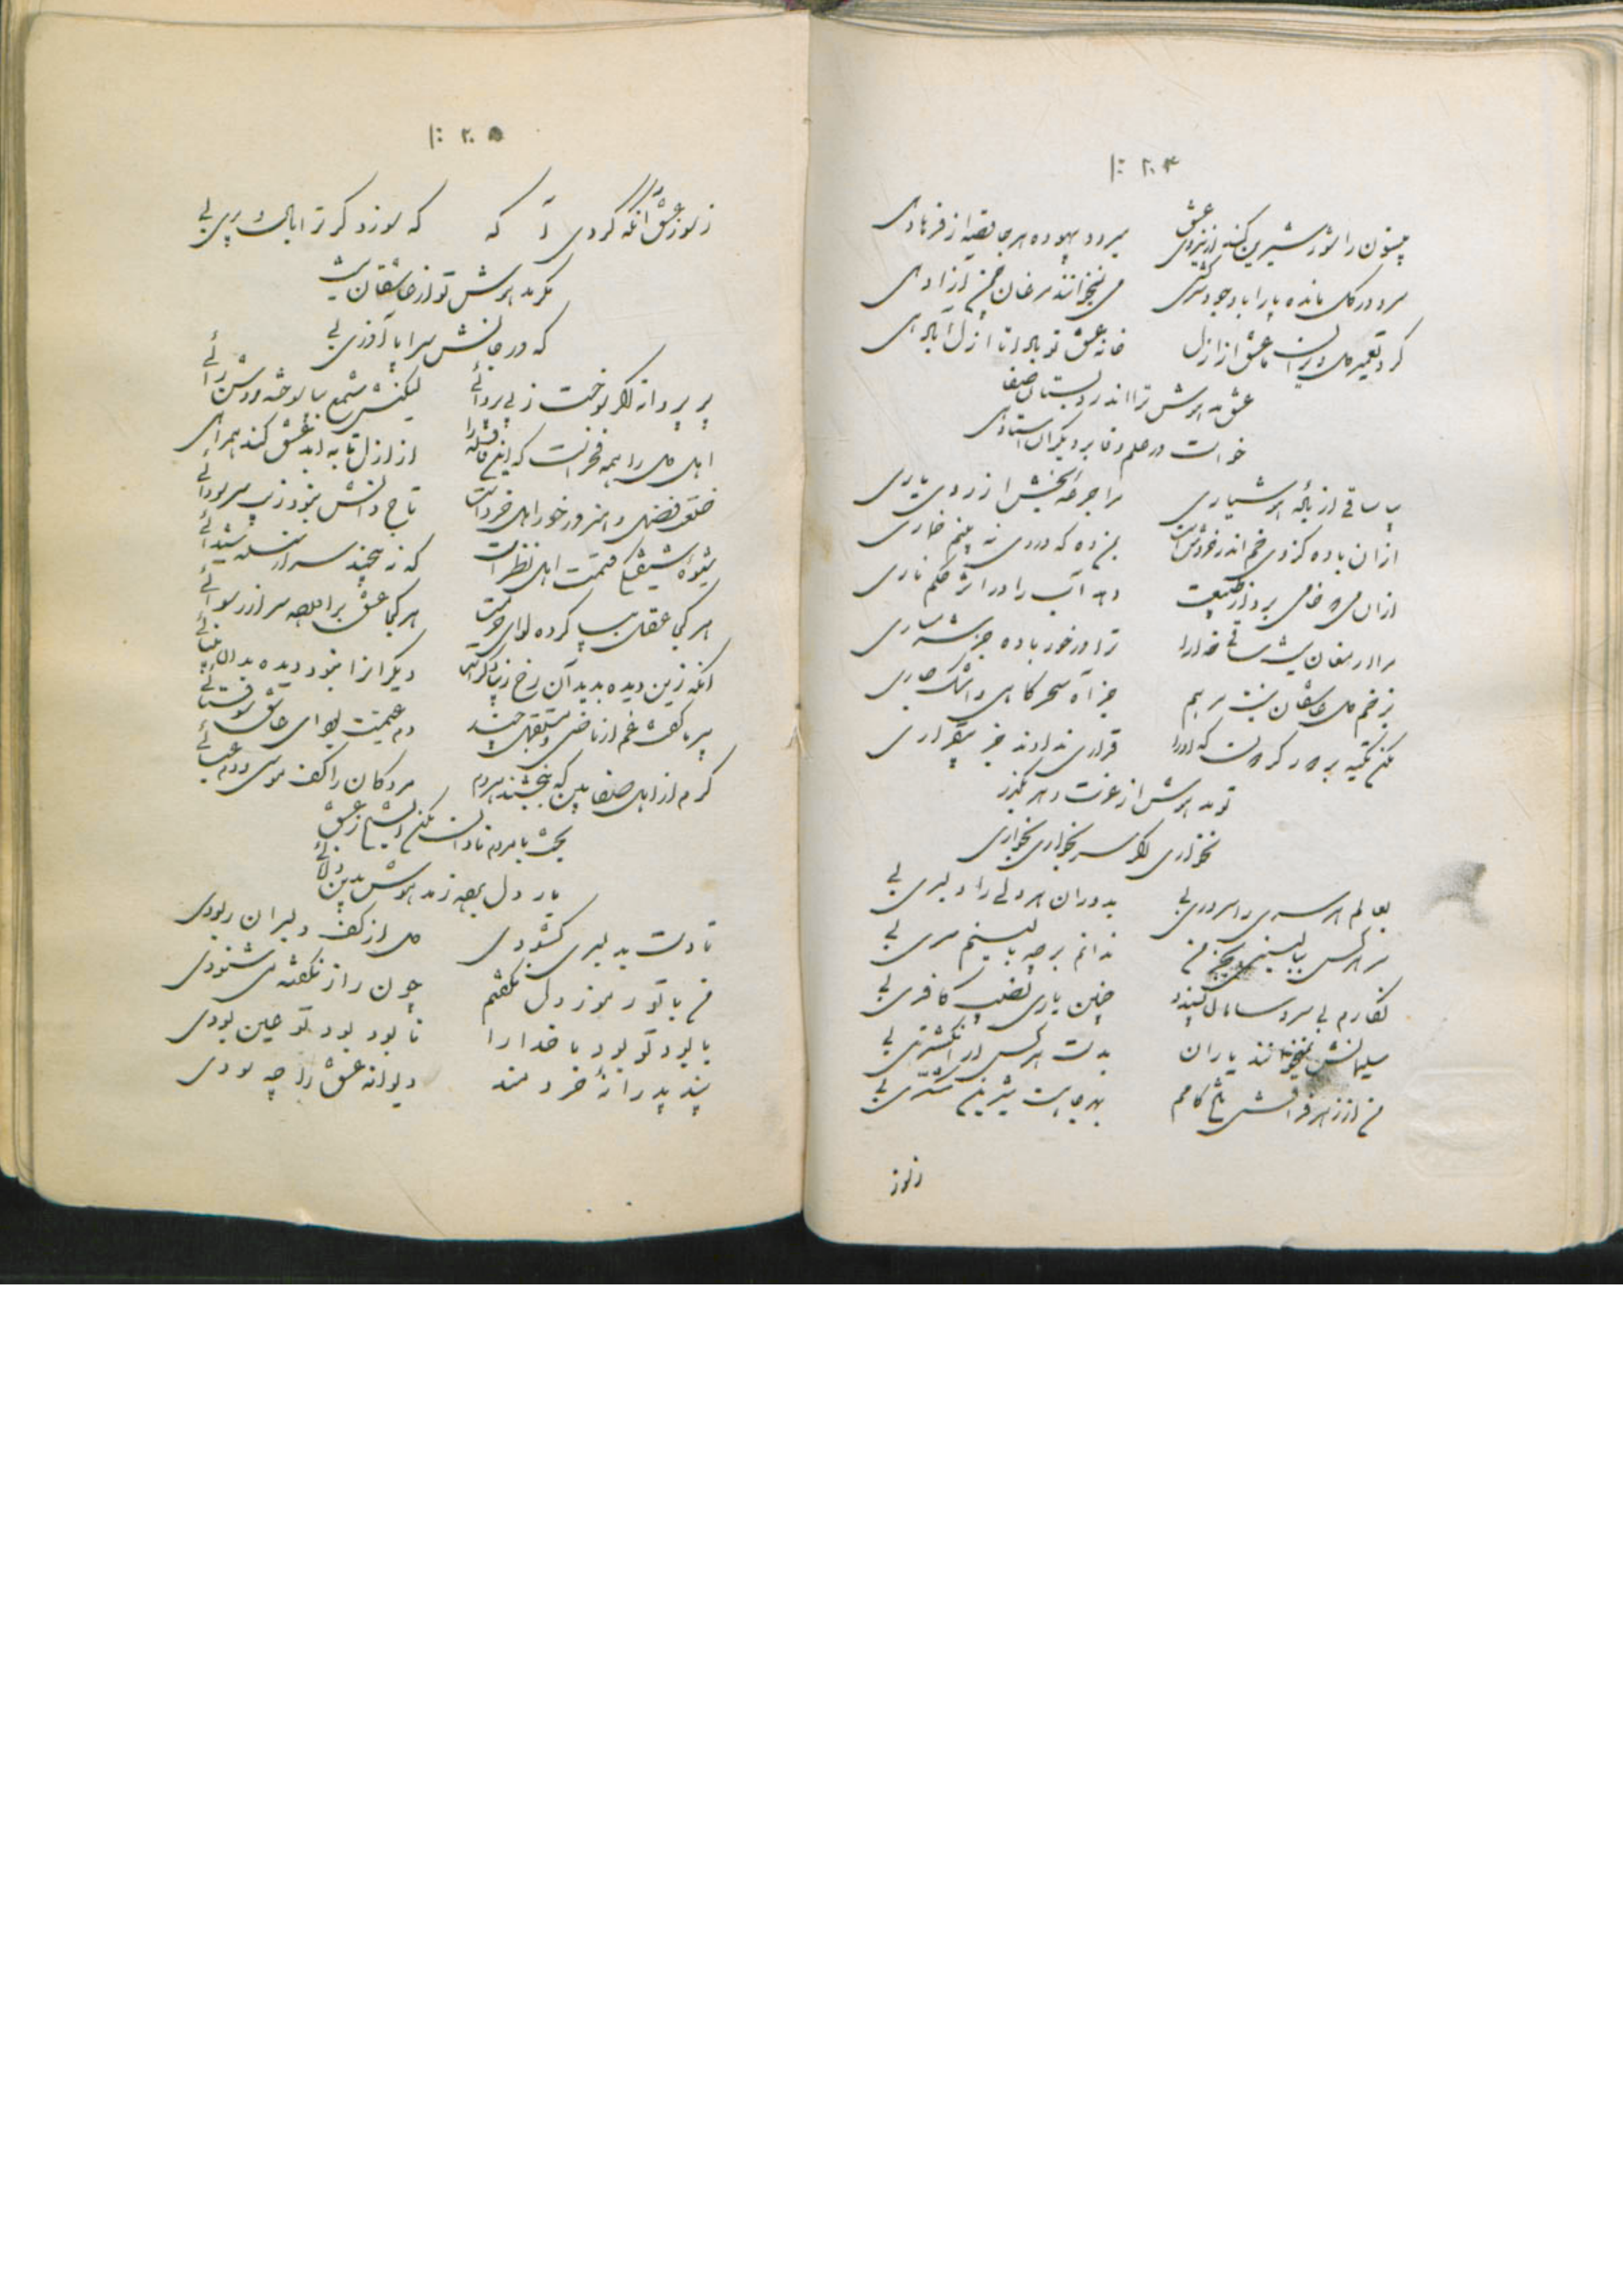 ۲۰۴
بیستون را شور شیرین کند از نیروی عشق میرود بیهوده هر جا قصه از فرهادی
سرو در گل مانده پا را با وجود سرکشی می نخوانند مرغان چمن آزادی
کرد تعمیر دل ویران ما عشق از ازل خانه عشق تو باد تا ازل آبادی
عشق مدهوش ترا اندر دبستان صفا
خواست در علم وفا بر دیگران استادی
بیا ساقی از باده هوشیاری مرا جرعه بخش از روی یاری
از آن باده کز وی خم اندر خروش است بمن ده که دردی نه بینم خماری
از آن می که خامی برد از طبیعت دهد آب را در اثر حکم ناری
مرا ارمغان پیش ساقی خدا را ترا در خور باده جز شرمساری
بزخم دل عاشقان نیست مرهم جز آه سحرگاهی و اشک جاری
مکن تکیه بر دور گردون که او را قراری ندادند جز بیقراری
تو مدهوش از عزت دهر بگذر
نخواری اگر سر بخواری بخواری
بعالم هر سری را سروری بی بدوران هر دلی را دلبری بی
سر هر کس ببالینی بجز من ندانم بر چه بالینم سری بی
نگارم بی سر و سامان پسندد چنین یاری نصیب کافری بی
سلیمانش نمیخوانند یاران بدست هر کس ار انگشتری بی
من از زهر فراقش تلخ کامم بهر جا هست شیرین شکری بی
ز سوز
۲۰۵
ز سوز عشق آنگه گردی آگه که سوزد گر ترا بال و پری بی
مگر مدهوش تو از عاشقان نیست
که در جانش سراپا آذری بی
پر پروانه اگر سوخت ز بی پروائی لیکنش شمع بیاموخت روشن رائی
اهل دل را همه فخر است که این قافله را از ازل تا به ابد عشق کند همرائی
خلعت فضل و هنر در خور اهل خرد است تاج دانش نبود زیب سر سودائی
شیوه شیفتگی قسمت اهل نظر است که نه پیچند سر از سلسله شیدائی
هر کجا عقل بپا کرده لوای حرمت هر کجا عشق برافراخته سر از رسوائی
آنکه زین دیده بدید آن رخ زیبا دگر است دیگران را نبود دیده بدان بینائی
پر مکش غم از ماضی و مستقبل چند دم غنیمت بود ای عاشق
کرم از اهل صفا بین که بخشند بمردم مردگان را کف موسی و دم عیسائی
بحث با مردم نادان مکن ایشیخ ز عشق
بار دل بهره ز مدهوش بدین
تا دست به دلبری گشودی دل از کف دلبران ربودی
من با تو رموز دل نگفتم چون راز نگفته می شنودی
با بود تو بود ما خدا را نابود بود تو عین بودی
پند پدرانه خردمند دیوانه عشق را چه سودی